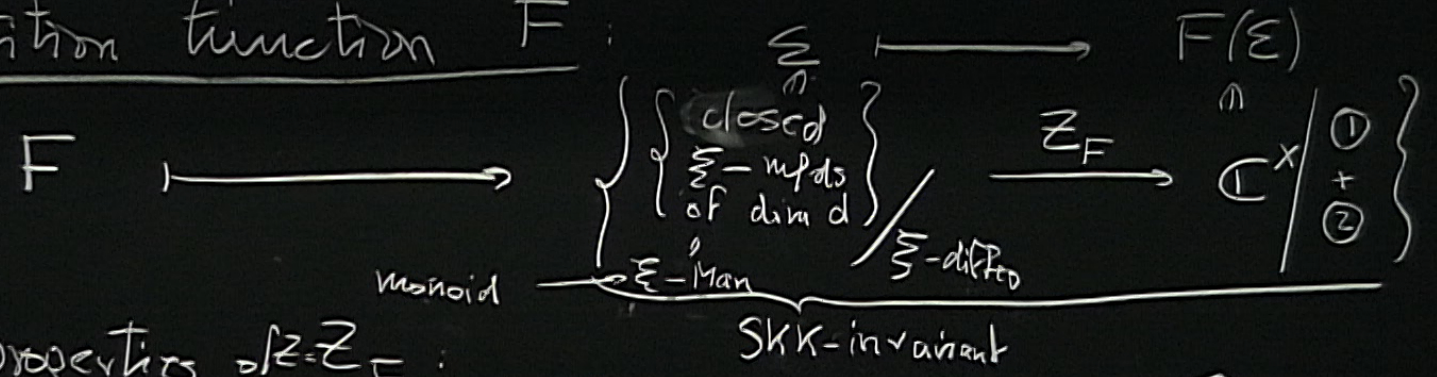 ition function F : Σ ⟼ F(Σ)
F ⟼ { { closed ξ-mfds of dim d } / ξ-diffeo —Z_F→ ℂ^× | ① + ② }
monoid → ξ-Man
SKK-invariant
roperties of Z=Z_F :